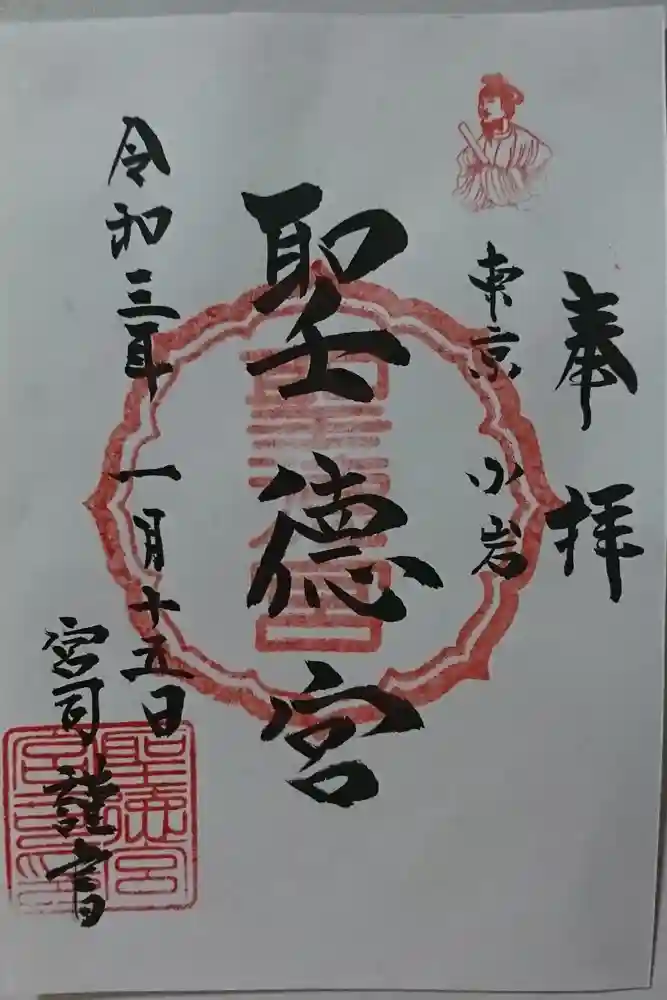 奉拝
東京 小岩
聖徳宮
令和三年 一月十五日
宮司 謹書
聖徳宮